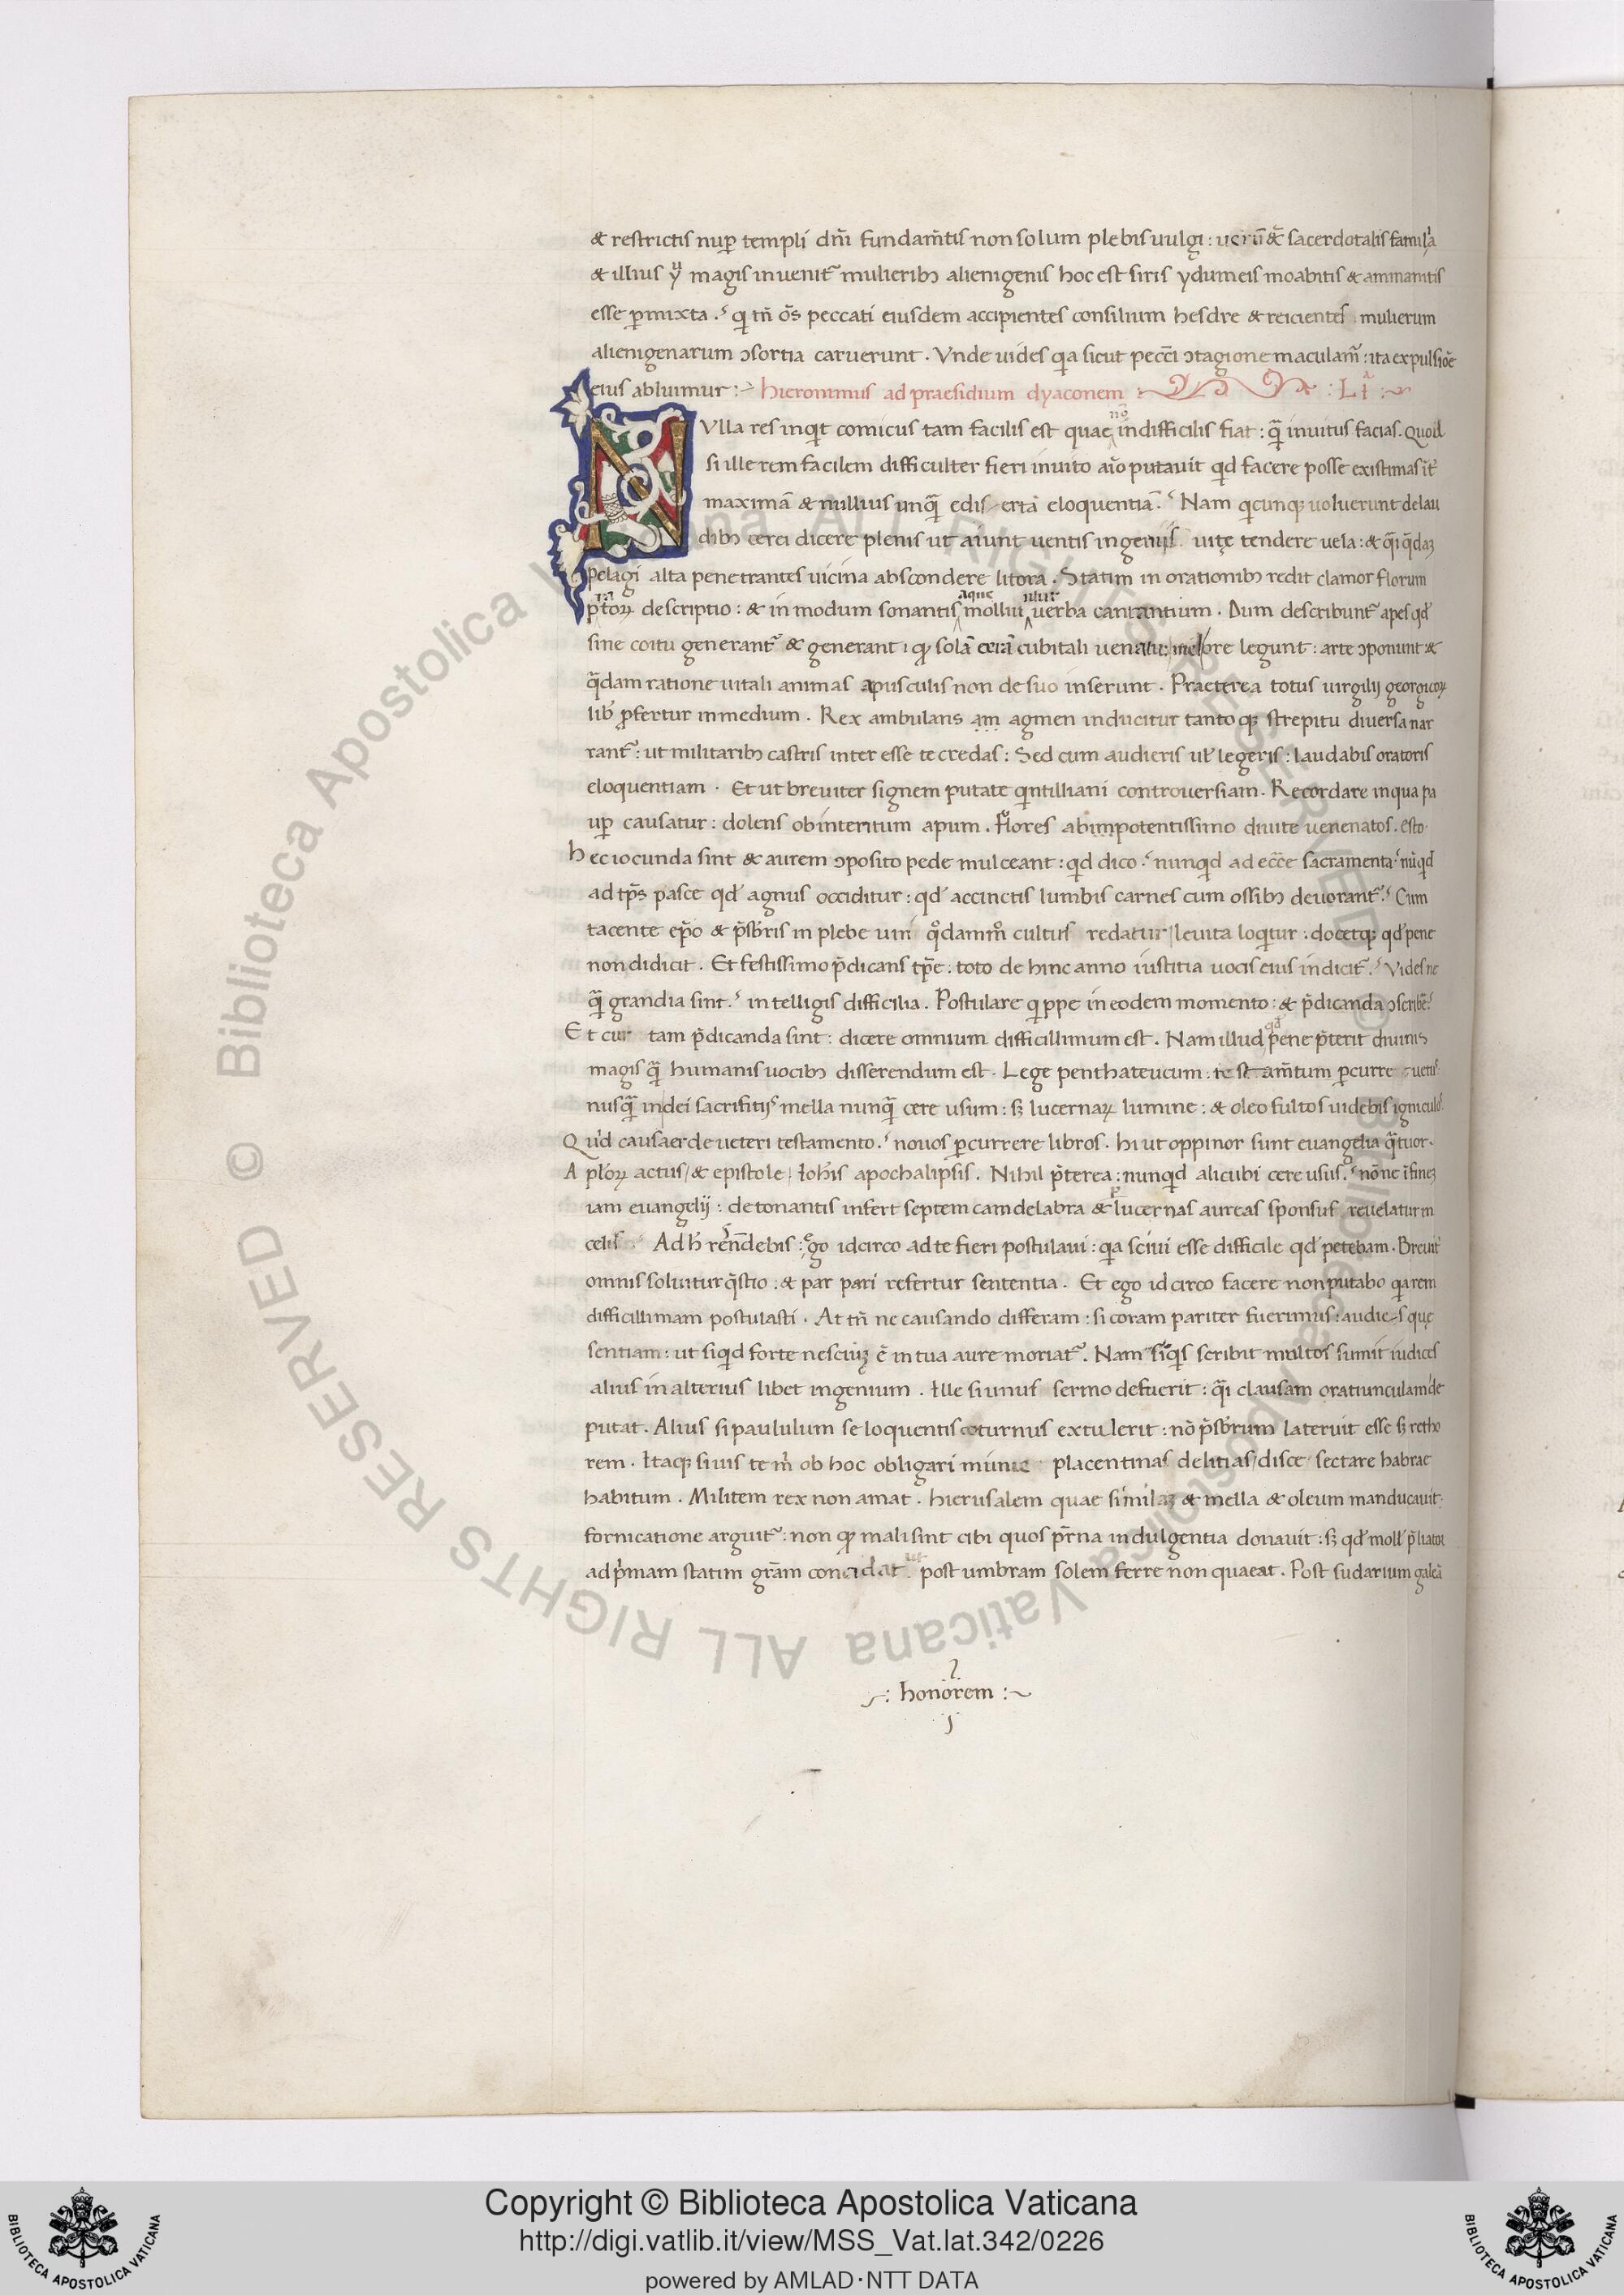 & restrictis nup̱ templi dn̄i fundam̄tis non solum plebis uulgi : uerū & sacerdotalis
& illius magis inuenit᷑ mulierib; alienigenis hoc est siris ydumeis moabitis & ammanitis
esse p̱mixta . qi tn̄ ōs peccati eiusdem accipientes consilium hesdre & reicientes mulierum
alienigenarum ↄsortia caruerunt . Vnde uides qa sicut pecc̄i ↄtagione maculam᷑ : ita expulsiōe
eius abluimur :~ hieronimus ad praesidium dyaconem : LI :~
NVlla res inqit comicus tam facilis est quae nō indifficilis fiat : qā inuitus facias . Quod
si ille rem facilem difficulter fieri inuito aīo putauit qd facere posse existimas
maximā & nullius unqā edissertā eloquentiā . Nam qicunq; uoluerunt de lau
dib; cerei dicere plenis ut aiunt uentis ingenijs uitę tendere uela : &
pelagi alta penetrantes uicina abscondere litora . Statim in orationib; redit clamor florum
descriptio : & in modum sonantis aque molliu verba cantantium . Dum describunt᷑ apes qd
sine coitu generant᷑ & generant : qp solā cerā cubitali uenatu : mel ore legunt : arte ↄponunt &
qā̄dam ratione uitali animas apusculis non de suo inserunt . Praeterea totus uirgilij georgicoꝝ
lib̄ p̱fertur in medium . Rex ambulans am agmen inducitur tanto q; strepitu diuersa nar
rant᷑ : ut militarib; castris inter esse te credas : Sed cum audieris ul̄ legeris : laudabis oratoris
eloquentiam . Et ut breuiter signem putate qintilliani controuersiam . Recordare in qua pa
up̱ causatur : dolens ob interitum apum . flores ab impotentissimo diuite uenenatos . esto
hec iocunda sint & aurem ↄposito pede mulceant : qd dico . nunqid ad ecc̄e sacramenta
ad tp̄s pasce qd agnus occiditur : qd accinctis lumbis carnes cum ossib; deuorant᷑ . Cum
tacente ep̄o & p̄sbris in plebe uni qōdammō cultus redatur leuita loqitur : docetq; qd pene
non didicit . Et festissimo p̄dicans tp̄e . toto de hinc anno iustitia uocis eius indicit᷑ . Vides ne
qā grandia sint . intelligis difficilia . Postulare qippe in eodem momento : & p̄dicanda ↄscribē
Et cur tam p̄dicanda sint : dicere omnium difficillimum est . Nam illud qd pene p̄terit diuinis
magis qā humanis uocib; disserendum est . Lege penthateucum : testam̄tum p̱curre
nusqā in dei sacrifitijs mella nunqā cere usum : s; lucernaꝝ lumine : & oleo fultos uidebis igniculos
Quid causaer de ueteri testamento . nouos p̱currere libros . hi ut oppinor sunt euangelia qātuor .
Apl̄oꝝ actus / & epistole / Ioh̄is apochalipsis . Nihil p̄terea : nunqid alicubi cere usus . nōne
iam euangelij : de tonantis infert septem camdelabra & lucernas aureas sponsus reuelatur in
celis Ad h̄ rēndebis : ego idcirco ad te fieri postulaui : qa sciui esse difficile qd petebam . Breuit̄
omnis soluitur qs̄tio : & par pari refertur sententia . Et ego id circo facere non putabo qa rem
difficillimam postulasti . At tn̄ ne causando differam : si coram pariter fuerimus : audies quę
sentiam : ut siqid forte nesciuꝫ ē in tua aure moriat᷑ . Nam siqis scribit multos sumit iudices
alius in alterius libet ingenium . Ille si unus sermo defuerit : qāi clausam oratiunculam de
putat . Alius si paululum se loquentis coturnus extulerit : nō p̄sbrum lateruit esse s; retho
rem . Itaq; si uis te m̄ ob hoc obligari placentinas delitias / disce / sectare habrae
habitum . Militem rex non amat . hierusalem quae similaꝫ & mella & oleum manducauit
fornicatione arguit᷑ : non qp mali sint cibi quos pr̄na indulgentia donauit : s; qd moll
ad p̄mam statim grām concidat ut post umbram solem ferre non quaeat . Post sudarium galeā
~: honorem :~
© Biblioteca Apostolica Vaticana ALL RIGHTS RESERVED
© Biblioteca Apostolica Vaticana ALL RIGHTS RESERVED
BIBLIOTECA APOSTOLICA VATICANA
Copyright © Biblioteca Apostolica Vaticana
http://digi.vatlib.it/view/MSS_Vat.lat.342/0226
powered by AMLAD·NTT DATA
BIBLIOTECA APOSTOLICA VATICANA